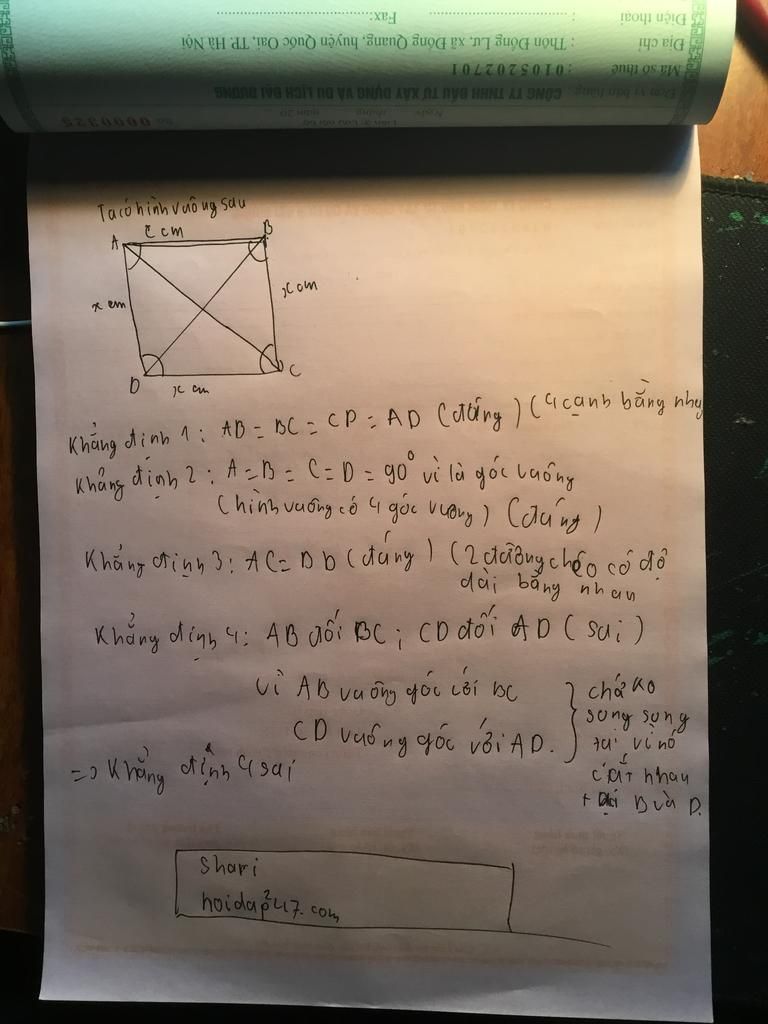 Điện thoại : Fax:
Địa chỉ : Thôn Đồng Lư, xã Đồng Quang, huyện Quốc Oai, TP. Hà Nội
Mã số thuế : 0105202701
Đơn vị bán hàng: CÔNG TY TNHH ĐẦU TƯ XÂY DỰNG VÀ DU LỊCH ĐẠI DƯƠNG
Ngày tháng năm 20
Số 0000325
Ta có hình vuông sau
A cm B
x cm
x cm
D x cm C
Khẳng định 1: AB = BC = CD = AD (đúng) (4 cạnh bằng nhau
Khẳng định 2: A = B = C = D = 90° vì là góc vuông
(hình vuông có 4 góc vuông) (đúng)
Khẳng định 3: AC = BD (đúng) (2 đường chéo có độ
dài bằng nhau
Khẳng định 4: AB đối BC; CD đối AD (sai)
vì AB vuông góc với BC
CD vuông góc với AD.
chứ ko
song song
tại vì nó
cắt nhau
tại B và D.
=> Khẳng định 4 sai
Shari
hoidap247.com